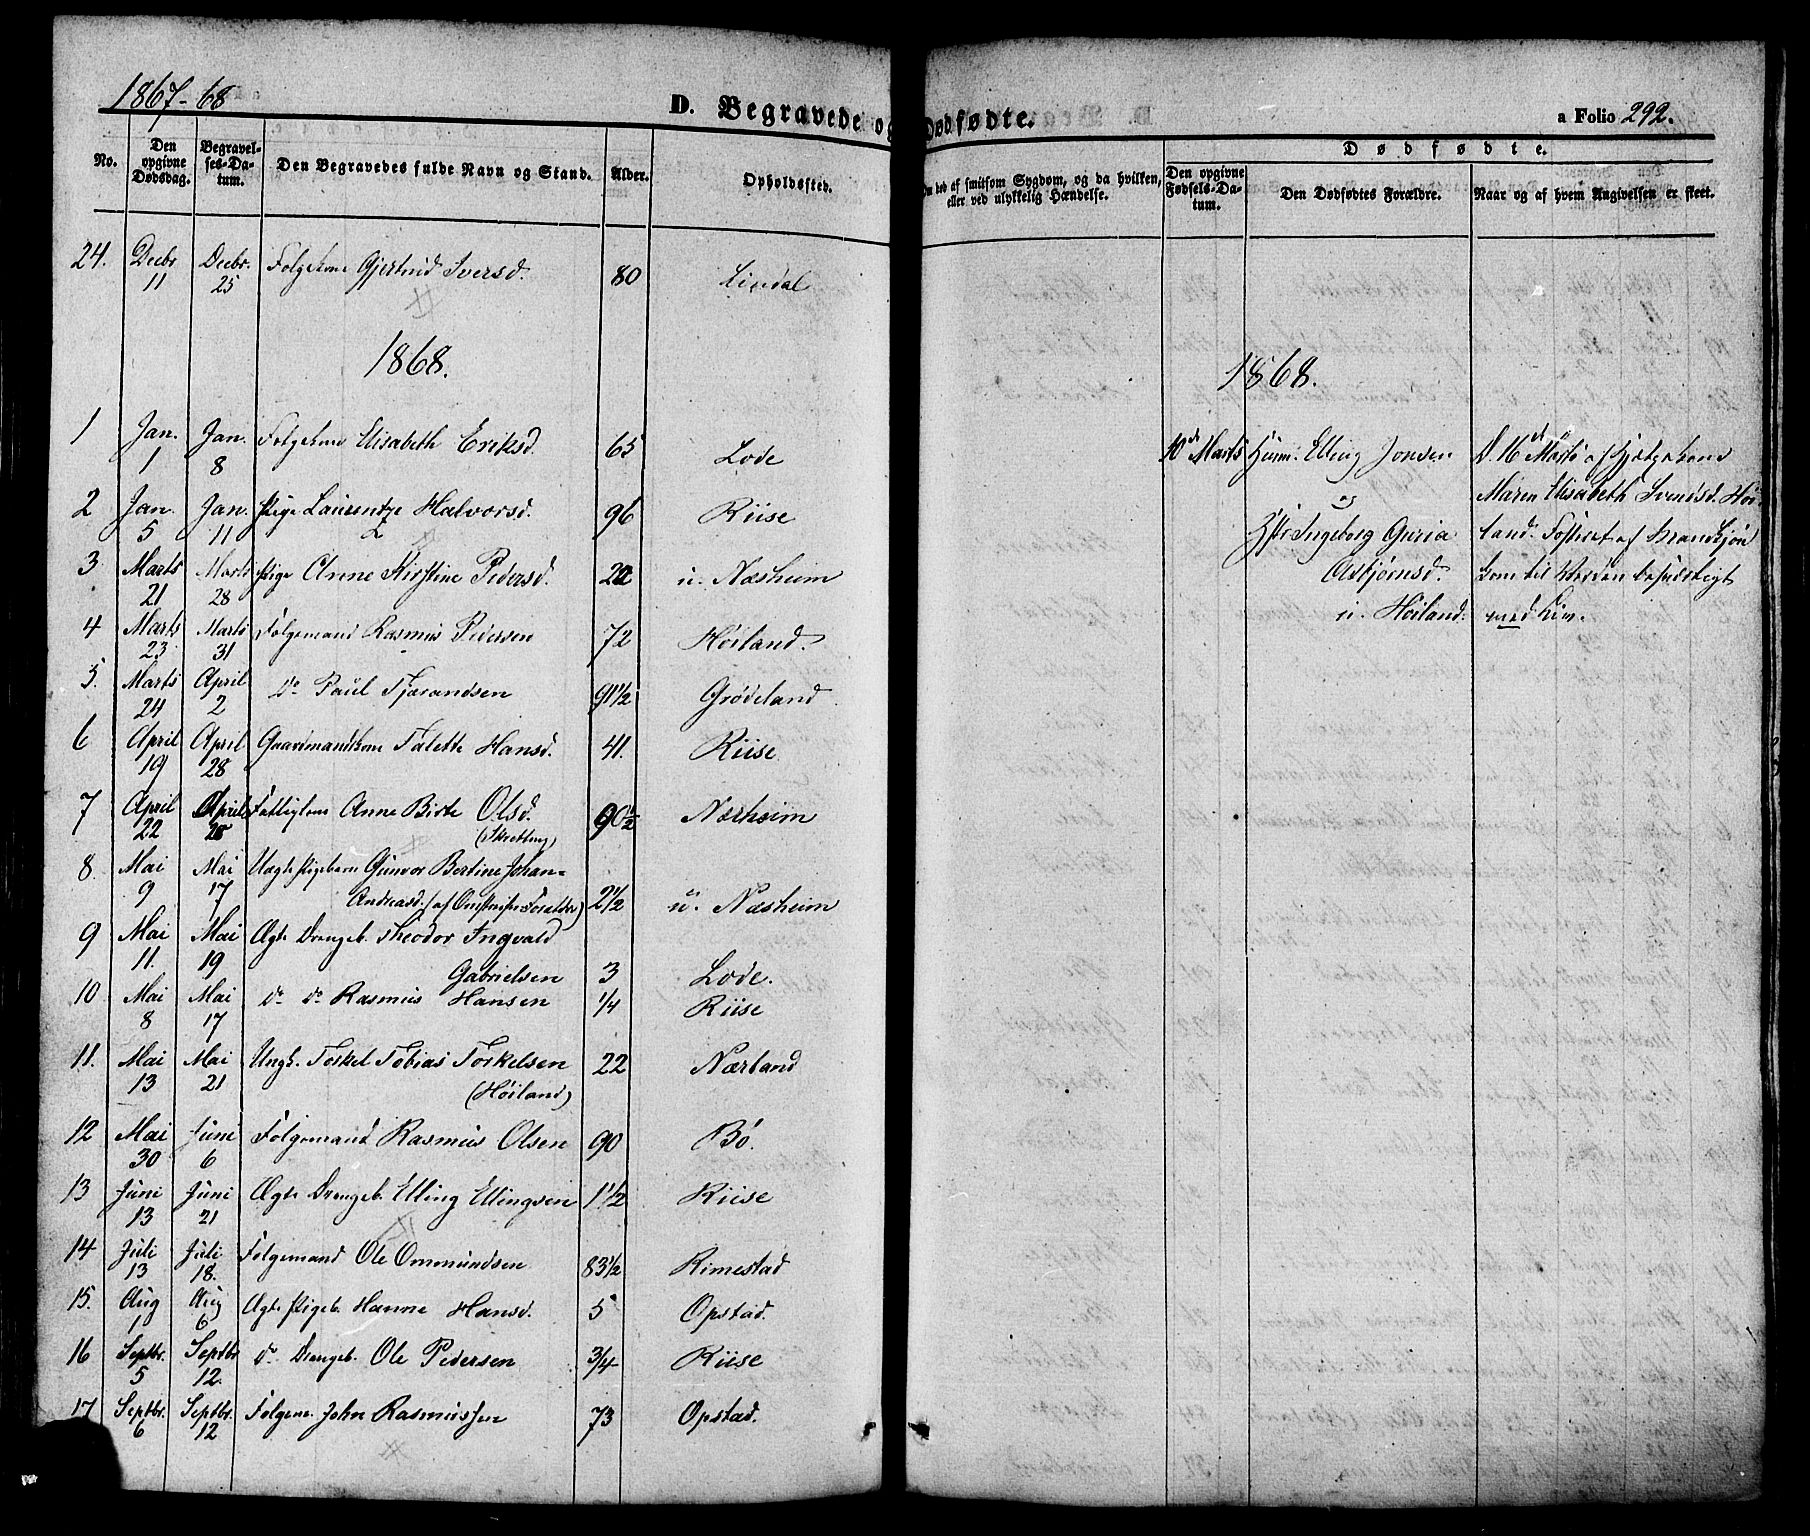 1867-68
D. Begravede og Dødfødte.
a Folio 292.
No.
Den opgivne Dødsdag.
Begravelses-Datum.
Den Begravedes fulde Navn og Stand.
Alder.
Opholdssted.
Om død af smitsom Sygdom, og da hvilken, eller ved ulykkelig Hændelse.
Dødfødte.
Den opgivne Fødsels-Datum.
Den Dødfødtes Forældre.
Naar og af hvem Angivelsen er skeet.
24. Decbr 11 Decbr. 25 Folgekone Gjertrud Iversd. 80 Lindal
1868.
1 Jan. 1 Jan. 8 Folgekone Elisabeth Eriksd. 65 Lode
2 Jan. 5 Jan. 11 Pige Laurentze Halvorsd. 96 Riise
3 Marts 21 Marts 28 Pige Anne Kirstine Pedersd. 22 u. Næsheim
4 Marts 23 Marts 31 Folgemand Rasmus Pedersen 72 Høiland.
5. Marts 24 April 2 do Paul Tjerandsen 91 1/2 Grødeland
6 April 19 April 28 Gaardmandkone Talette Hansd. 41. Riise
7 April 22 April 28 Anne Birte Olsd. (Skretting) 90 1/2 Nærheim
8. Mai 9 Mai 17 Uægte Pigebarn Gunvor Bertine Johan-
Andreasd. (af Forældre) 2 1/2 u. Næsheim
9 Mai 11. Mai 19 Ægte Drengeb. Theodor Ingvald
Gabrielsen 3 Lode.
10 Mai 8 Mai 17 do do Rasmus Hansen 1/4 Riise
11. Mai 13 Mai 21 Ungk. Torkel Tobias Torkelsen 22 Nærland
(Høiland)
12 Mai 30 Juni 6 Folgemand Rasmus Olsen 90 Bø.
13 Juni 13 Juni 21 Ægte Drengeb. Elling Ellingsen 1 1/2 Riise
14 Juli 13 Juli 18. Folgemand Ole Ommundsen 83 1/2 Rimestad
15. Aug 1 Aug 6 Ægte Pigeb. Hanne Hansd. 5 Opstad.
16 Septbr. 5 Septbr 12. do Drengeb. Ole Pedersen 3/4 Riise
17 Septbr. 6 Septbr. 12 John Rasmussen 73 Opstad.
1868.
10de Marts
Huusm. Elling Jonsen
og
Ingeborg Guria
Asbjørnsd.
u. Høiland.
D. 16de Marts af Hjelpekone
Maren Elisabeth Svendsd. Høi-
land. Fosteret af Mandkjøn
kom til Verden
med Lim.